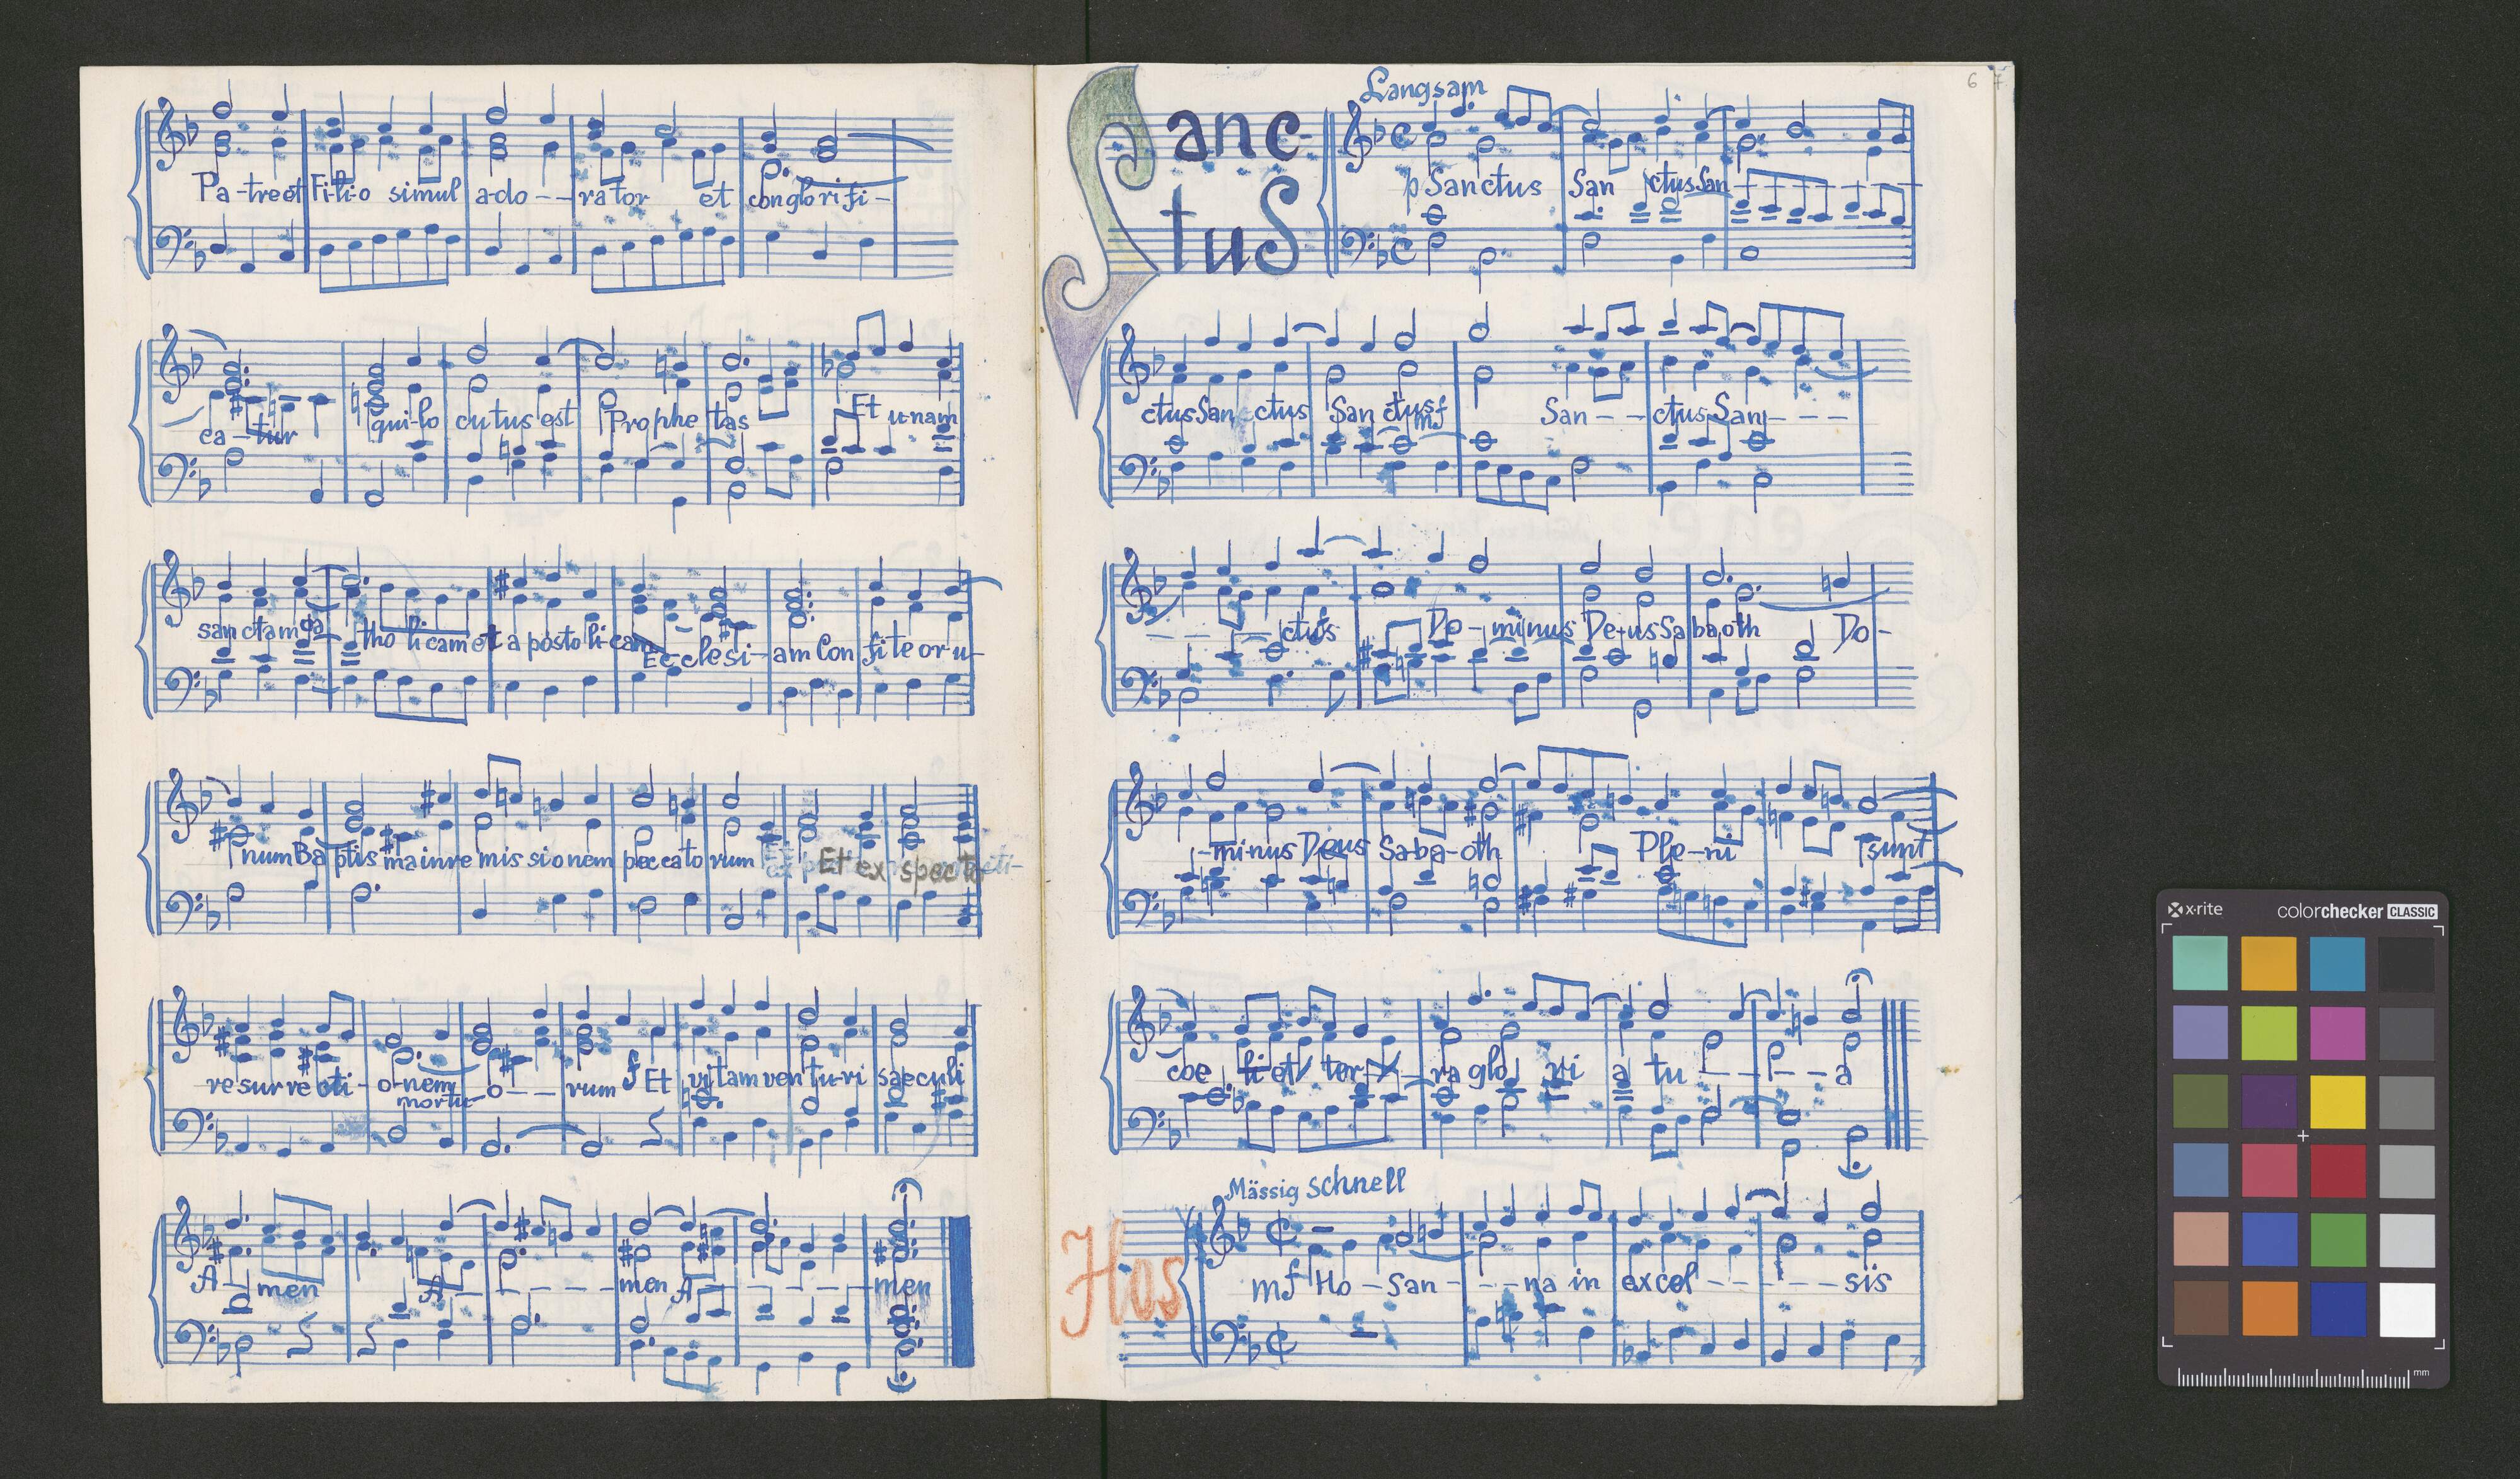 Pa-tre et Fi-li-o simul a-do - - rator et conglorifi-
ca-tur qui-lo cutus est Prophe tas Et unam
sanctam ca tho licam et apostolicam Ecclesi-am Con fiteor u-
num Ba ptis ma in re missionem peccato rum Et ex spect
resurrecti-o-nem mortu-o - - rum f Et vitam venturi saeculi
A - men A - - - - - men A - - - - - men
6 7
Sanc-
tuS
Langsam
p Sanctus San ctus San - - - -
ctus San - ctus San ctus mf San - - ctus San - - -
- - - - ctus Do - minus De-us Sa ba oth Do-
-minus Deus Sa-ba-oth Ple-ni sunt
coe li et ter ra glo ri a tu - - - - a
Mässig schnell
Hos
mf Ho - San - - - na in excel - - - - - sis
x-rite colorchecker CLASSIC
mm